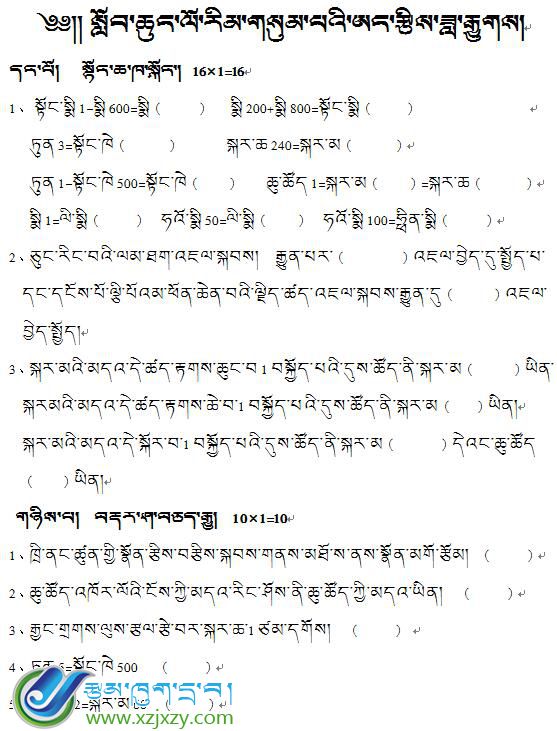 ༄༅།། སློབ་ཆུང་ལོ་རིམ་གསུམ་པའི་ཨང་རྩིས་ཟླ་རྒྱུགས།
དང་པོ། སྟོང་ཆ་ཁ་སྐོང་། 16×1=16
1、སྟོང་སྨི 1-སྨི 600=སྨི ( ) སྨི 200+སྨི 800=སྟོང་སྨི ( )
ཏུན 3=སྟོང་ཁེ ( ) སྐར་ཆ 240=སྐར་མ ( )
ཏུན 1-སྟོང་ཁེ 500=སྟོང་ཁེ ( ) ཆུ་ཚོད 1=སྐར་མ ( ) =སྐར་ཆ ( )
སྨི 1=ལི་སྨི ( ) ཧའོ་སྨི 50=ལི་སྨི ( ) ཧའོ་སྨི 100=ཧྥིན་སྨི ( )
2、ཅུང་རིང་བའི་ལམ་ཐག་འཇལ་སྐབས། རྒྱུན་པར་ ( ) འཇལ་བྱེད་དུ་སྤྱོད་པ་
དང་དངོས་པོ་ལྕི་པོའམ་ཕོན་ཆེན་བའི་ལྗིད་ཚད་འཇལ་སྐབས་རྒྱུན་དུ ( ) འཇལ་
བྱེད་སྤྱོད།
3、སྐར་མའི་མདའ་དེ་ཚད་རྟགས་ཆུང་བ 1 བསྐྱོད་པའི་དུས་ཚོད་ནི་སྐར་མ ( ) ཡིན་
སྐརམའི་མདའ་དེ་ཚད་རྟགས་ཆེ་བ་1 བསྐྱོད་པའི་དུས་ཚོད་ནི་སྐར་མ ( ) ཡིན།
སྐར་མའི་མདའ་དེ་སྐོར་བ་1 བསྐྱོད་པའི་དུས་ཚོད་ནི་སྐར་མ ( ) དེའང་ཆུ་ཚོད
( ) ཡིན།
གཉིས་པ། བདར་ཤ་བཅད་རྒྱུ། 10×1=10
1、ཁྲི་ནང་ཚུན་གྱི་སྣོན་རྩིས་བརྩིས་སྐབས་གནས་མཐོ་ས་ནས་སྣོན་མགོ་རྩོམ། ( )
2、ཆུ་ཚོད་འཁོར་ལོའི་ངོས་ཀྱི་མདའ་རིང་ཤོས་ནི་ཆུ་ཚོད་ཀྱི་མདའ་ཡིན། ( )
3、རྒྱང་གྲགས་ལུས་རྩལ་རྩེ་བར་སྐར་ཆ་1 ཙམ་དགོས། ( )
4、ཏུན 6=སྟོང་ཁེ 500 ( )
2=སྐར་མ
རྩོམ་ཁུག་དྲ་བ།
www.xzjxzy.com